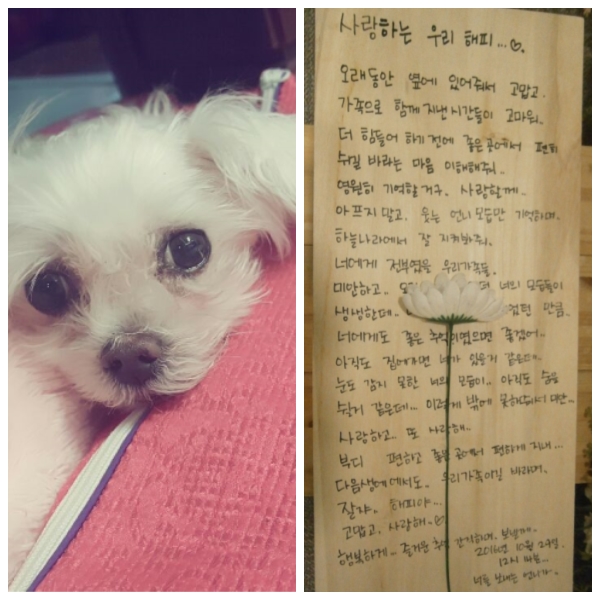 사랑하는 우리 해피...♡.
오래동안 옆에 있어줘서 고맙고.
가족으로 함께 지낸 시간들이 고마워..
더 힘들어 하기전에 좋은곳에서 편히
쉬길 바라는 마음 이해해줘..
영원히 기억할거구. 사랑할께..
아프지말고. 웃는 언니모습만 기억하며.
하늘나라에서 잘 지켜봐줘.
너에게 전부였을 우리가족들.
미안하고.. 너의 모습들이
생생한데.. 만큼.
너에게도 좋은 추억이였으면 좋겠어..
아직도 집에가면 네가 있을거 같은데..
눈도 감지 못한 너의모습이.. 아직도 숨을
쉴거 같은데... 이렇게 밖에 못해줘서 미안..
사랑하고.. 또 사랑해..
부디 편하고 좋은곳에서 편하게 지내...
다음생에서도.. 우리가족이길 바라며.
잘자.. 해피야...
고맙고, 사랑해..♡
행복하게.. 즐거운 추억 간직하며. 보낼께..
2016년 10월 29일.
12시
너를 보내는 언니가..